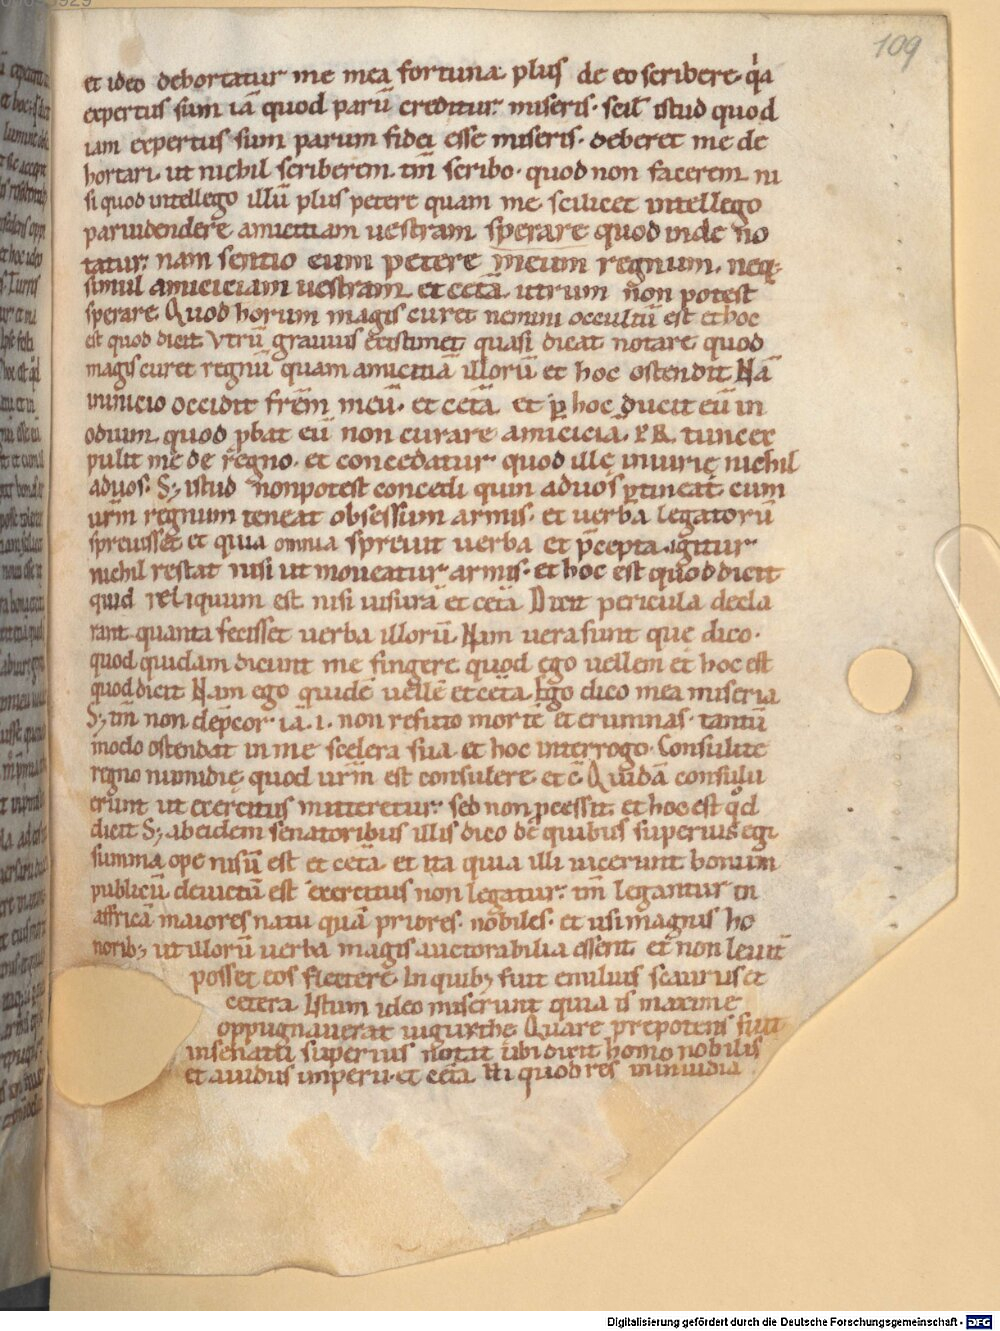 109
et ideo dehortatur me mea fortuna plus de eo scribere. q̓a
expertus sum iā quod parū creditur miseris. scil̄ istud quod
iam expertus sum parum fidei esse miseris. deberet me de
hortari. ut nichil scriberem. tm̄ scribo. quod non facerem ni
si quod intellego illū plus petere quam me. scilicet intellego
paruipendere amicitiam uestram sperare quod inde no
tatur. nam sentio eum petere meum regnum. neq;
simul amiciciam uestram. et cetā. utrum non potest
sperare. Quod horum magis curet nemini occultū est et hoc
est quod dicit Vtrū grauius existimet quasi dicat notare quod
magis curet regnū quam amicitiā illorū et hoc ostendit Nā
inimicio occidit frēm meū. et cetā et p hoc ducit eū in
odium. quod pbat eū non curare amiciciā. PR. tunc ex
pulit me de regno. et concedatur quod illę iniurię nichil
ad uos. S; istud non potest concedi quin ad uos ptineat. cum
urm̄ regnum teneat obsessum armis. et uerba legatorū
spreuisset et quia omnia spreuit uerba et p̄cepta. igitur
nichil restat nisi ut moueatur armis. et hoc est quod dicit
quid reliquum est nisi ius urā et cetā Dicit pericula decla
rant quanta fecisset uerba illorū. Nam uera sunt que dico.
quod quidam dicunt me fingere quod ego uellem et hoc est
quod dicit Nam ego quidē uellē et cetā Ego dico mea miseria
S; tm̄ non dep̄cor iā. i. non refuto mortē et erumnas. tantū
modo ostendat in me scelera sua. et hoc interrogo. Consulite
regno numidię quod urm̄ est consulere et c̄ Quidā consulu
erunt ut exercitus mitteretur. sed non pcessit. et hoc est qd̓
dicit S; ab eidem senatoribus illis dico de quibus superius egi
summa ope nisū est et cetā et ita quia illi uicerunt bonum
publicū deuictū est exercitus non legatur. tm̄ legantur in
affricā maiores natu quā priores. nobiles. et usi magnis ho
norib; ut illorū uerba magis auctorabilia essent. et non leuit̄
posset eos flectere. In quib; fuit emulus scaurus et
cetera. Istum ideo miserunt quia is maxime
oppugnauerat iugurthe. Quare prepotens fuit
in senatu superius notat ubi dicit homo nobilis
et auidus imperii. et cetā Hi quod res in inuidia
Digitalisierung gefördert durch die Deutsche Forschungsgemeinschaft - DFG